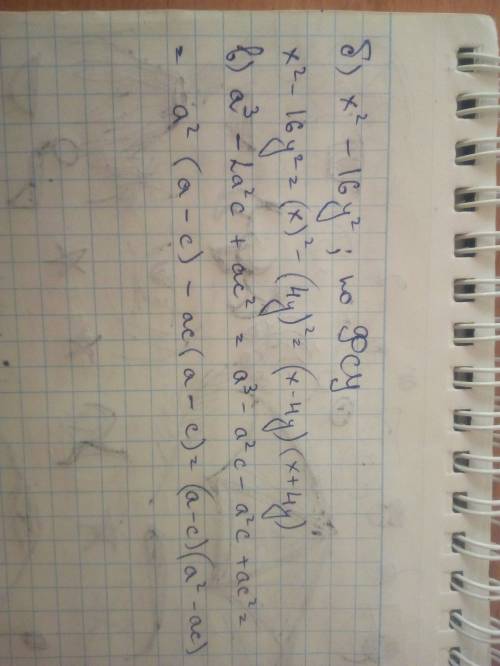 б) x² - 16y²; по ФСУ
x² - 16y² = (x)² - (4y)² = (x-4y)(x+4y)
в) a³ - 2a²c + ac² = a³ - a²c - a²c + ac² =
= a² (a - c) - ac(a - c) = (a-c)(a² - ac)